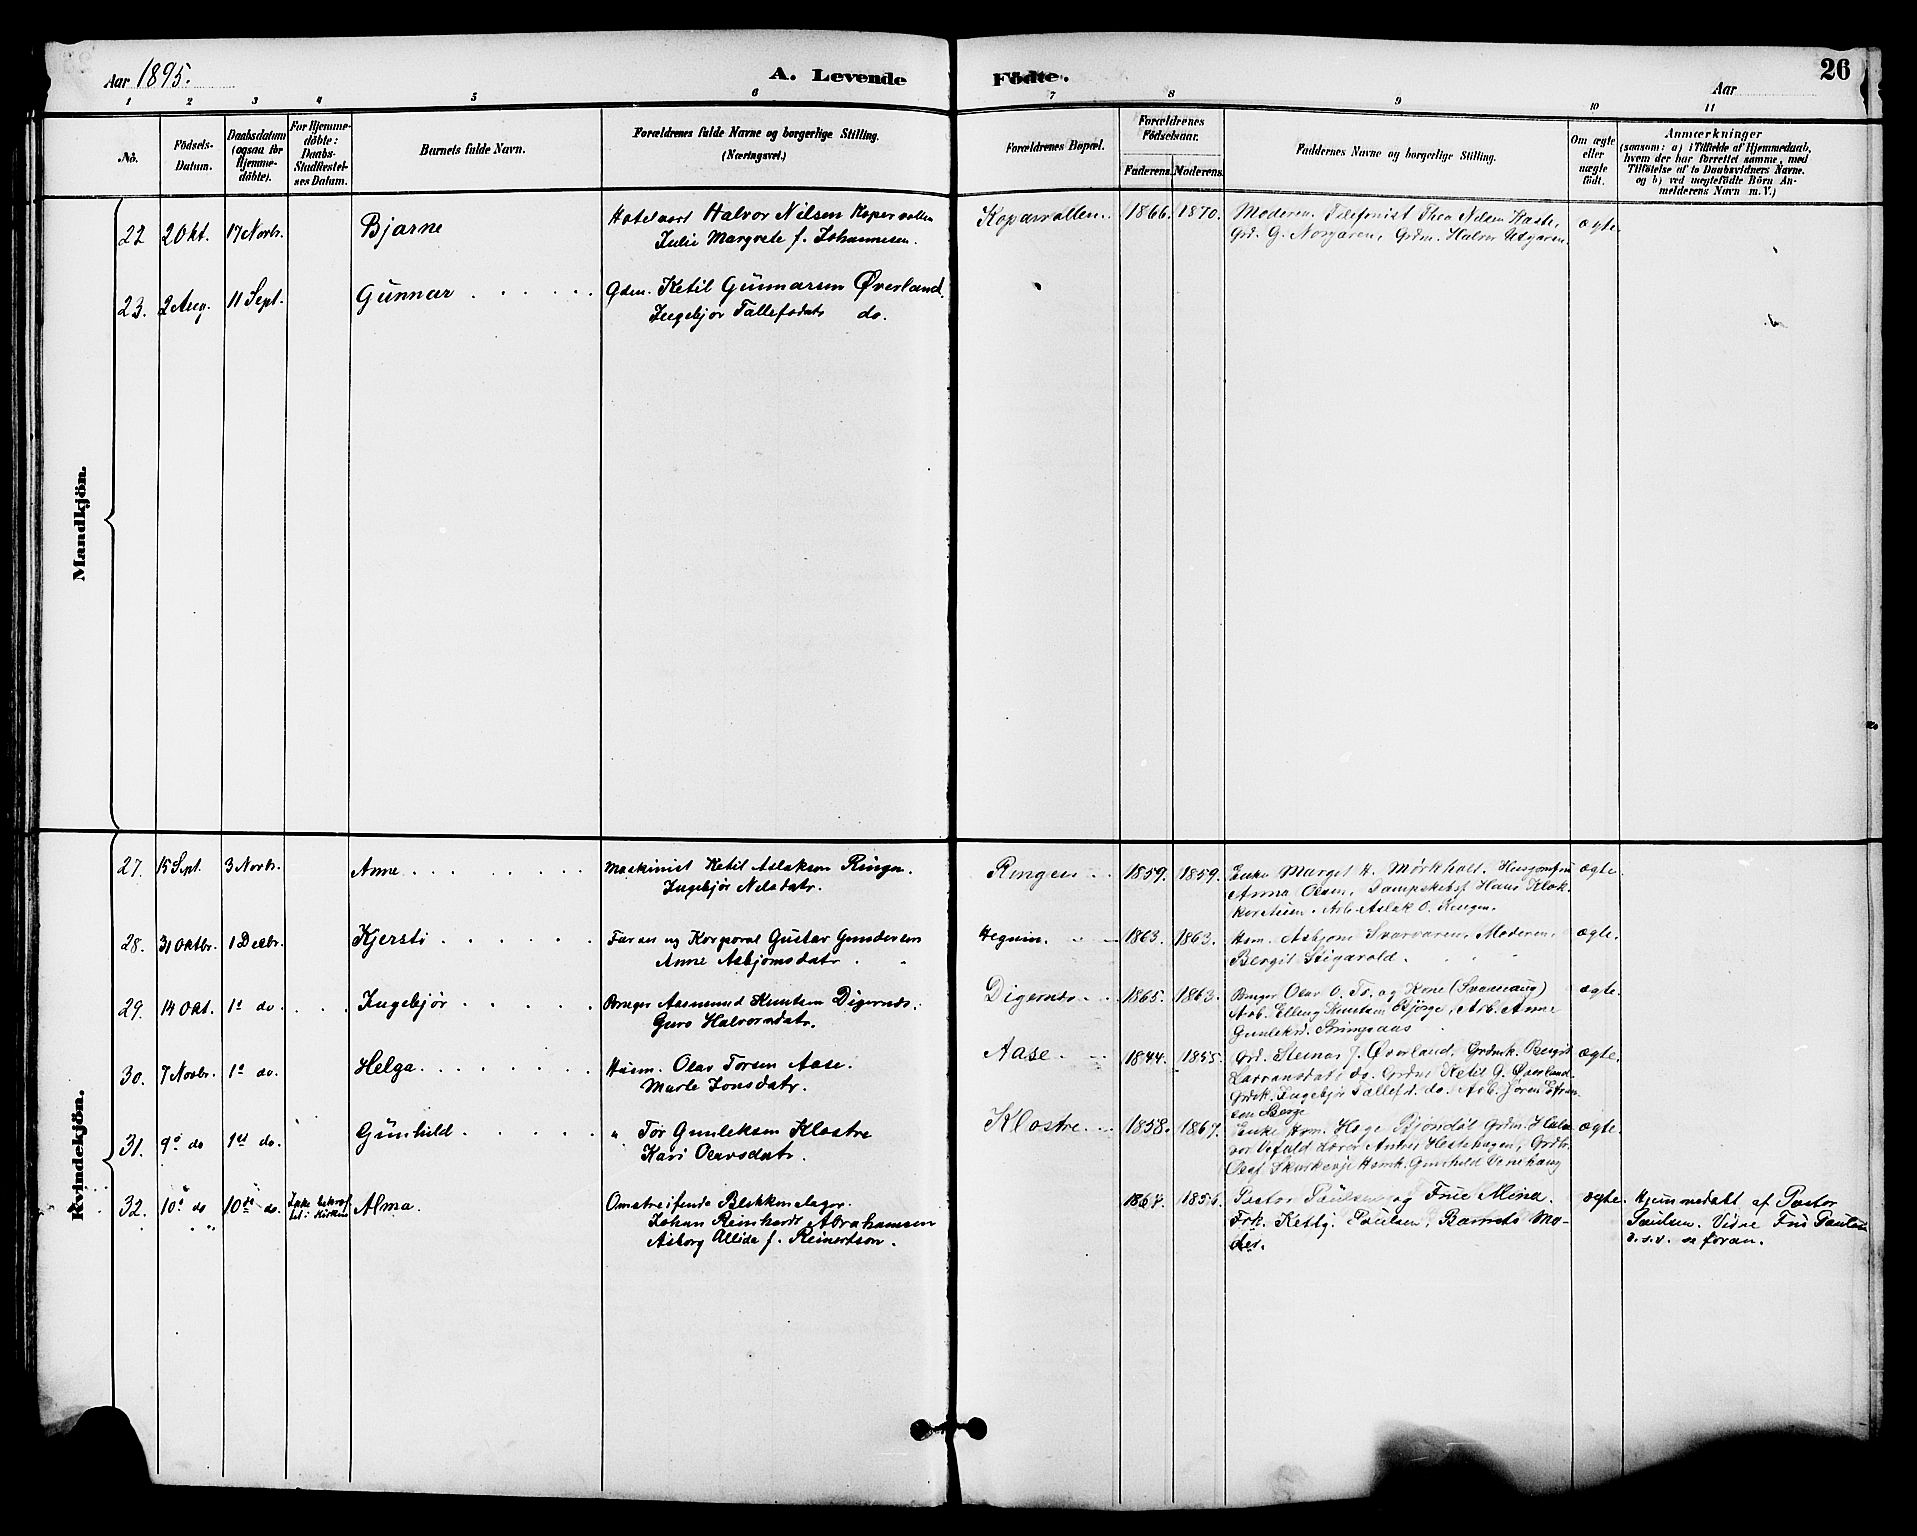 Aar 1895.
A. Levende Födte.
Aar
26
1 2 3 4 5 6 7 8 9 10 11
No.
Födsels-
Datum.
Daabsdatum
(ogsaa for
Hjemme-
döbte).
For Hjemme-
döbte:
Daabs-
Stadfæstel-
ses Datum.
Barnets fulde Navn.
Forældrenes fulde Navne og borgerlige Stilling.
(Næringsvei.)
Forældrenes Bopæl.
Forældrenes
Födselsaar.
Faderens. Moderens.
Faddernes Navne og borgerlige Stilling.
Om ægte
eller
uægte
födt.
Anmærkninger
(saasom: a) i Tilfælde af Hjemmedaab,
hvem der har forrettet samme, med
Tilföielse af to Daabsvidners Navne.
og b) ved uegtefödte Börn An-
melderens Navn m. V.)
Mandkjön.
22 2 Okt. 17 Novbr. Bjarne
Halvor Nilsen Kopervollen
Julie Margrete f. Johannesen.
Kopervollen. 1866. 1870.
Moderen. Telefonist Thea Nilsen Haste,
Grd. G. Norgaren, Grdm. Halvor Utgaren.
ægte.
23. 2 Aug. 11 Sept. Gunnar
Gdm. Ketil Gunnarsen Øverland.
Ingebjør Tallefsdatr do.
Kvindekjön.
27. 15 Sept. 3 Novbr. Anne
Maskinist Ketil Aslaksen Ringen.
Ingebjør Nilsdatr.
Ringen 1859. 1859.
Enke Marget H. Mørkholt.
Anna Olsen, Hans Klok-
Arb. Aslak O. Ringen.
ægte.
28. 31 Oktbr. 1 Decbr. Kjersti
og Korporal Gustav Gundersen
Anne Asbjørnsdatr.
1863. 1863.
Hsm. Asbjørn Svarvaren, Moderen,
Bergit Stigarold.
ægte.
29. 14 Okt. 1e do. Ingebjør
Bruger Aasmund Knutsen Digernes.
Guro Halvorsdatr.
Digernes. 1865. 1863.
Bruger Olav O. To. og Kone
Arb. Elling Knutsen Bjørge, Arb. Anne
Gunleksd. Bringsaas
ægte.
30. 7 Novbr. 1e do. Helga
Husm. Olav Torsen Aase.
Marte Jonsdatr.
Aase 1844. 1855.
Grd. Steinar J. Øverland, Grdmk. Bergit
do. Grdm. Ketil G. Øverland
Grdmk. Ingebjør Tallefsd. do. Arb. Jøren
sen Berge
ægte.
31. 9e do 1ste do. Gunhild
" Tor Gunleksen Klostre
Kari Olavsdatr.
Klostre 1858. 1867.
Enke Hsm. Hege Bjøndøl Grdm. Hal-
vor Vefald
Olaf Hsmk. Gunhild Venehaug
ægte.
32. 10e do 10de do. Alma
Omstreifende Blikkenslager
Johan Reinhardt Abrahamsen
Asborg Allida f. Reinertson.
1864. 1855.
Pastor Paulsen og Frue Mina.
Frk. Ketty Paulsen, Barnets Mo-
der.
ægte.
Hjemmedøbt af Pastor
Paulsen. Vidne Fru Paulsen
o.s.v. se foran.